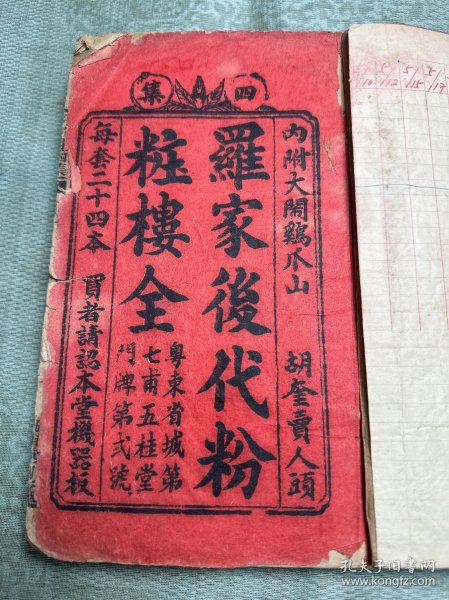 四集
內附大鬧鷄爪山　胡奎賣人頭
羅家後代粉
粧樓全
粵東省城第
七甫五桂堂
門牌第弍號
每套二十四本　買者請認本堂機器板
5/10 5/12 5/15 5/17
孔夫子旧书网
www.kongfz.com